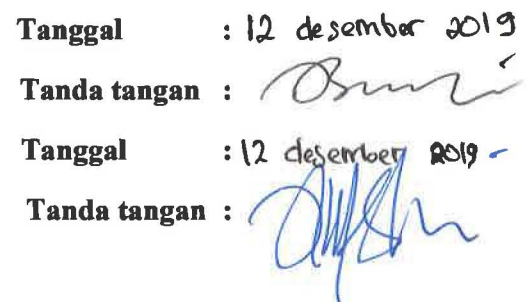 Tanggal : 12 desember 2019
Tanda tangan :
Tanggal : 12 desember 2019 -
Tanda tangan :